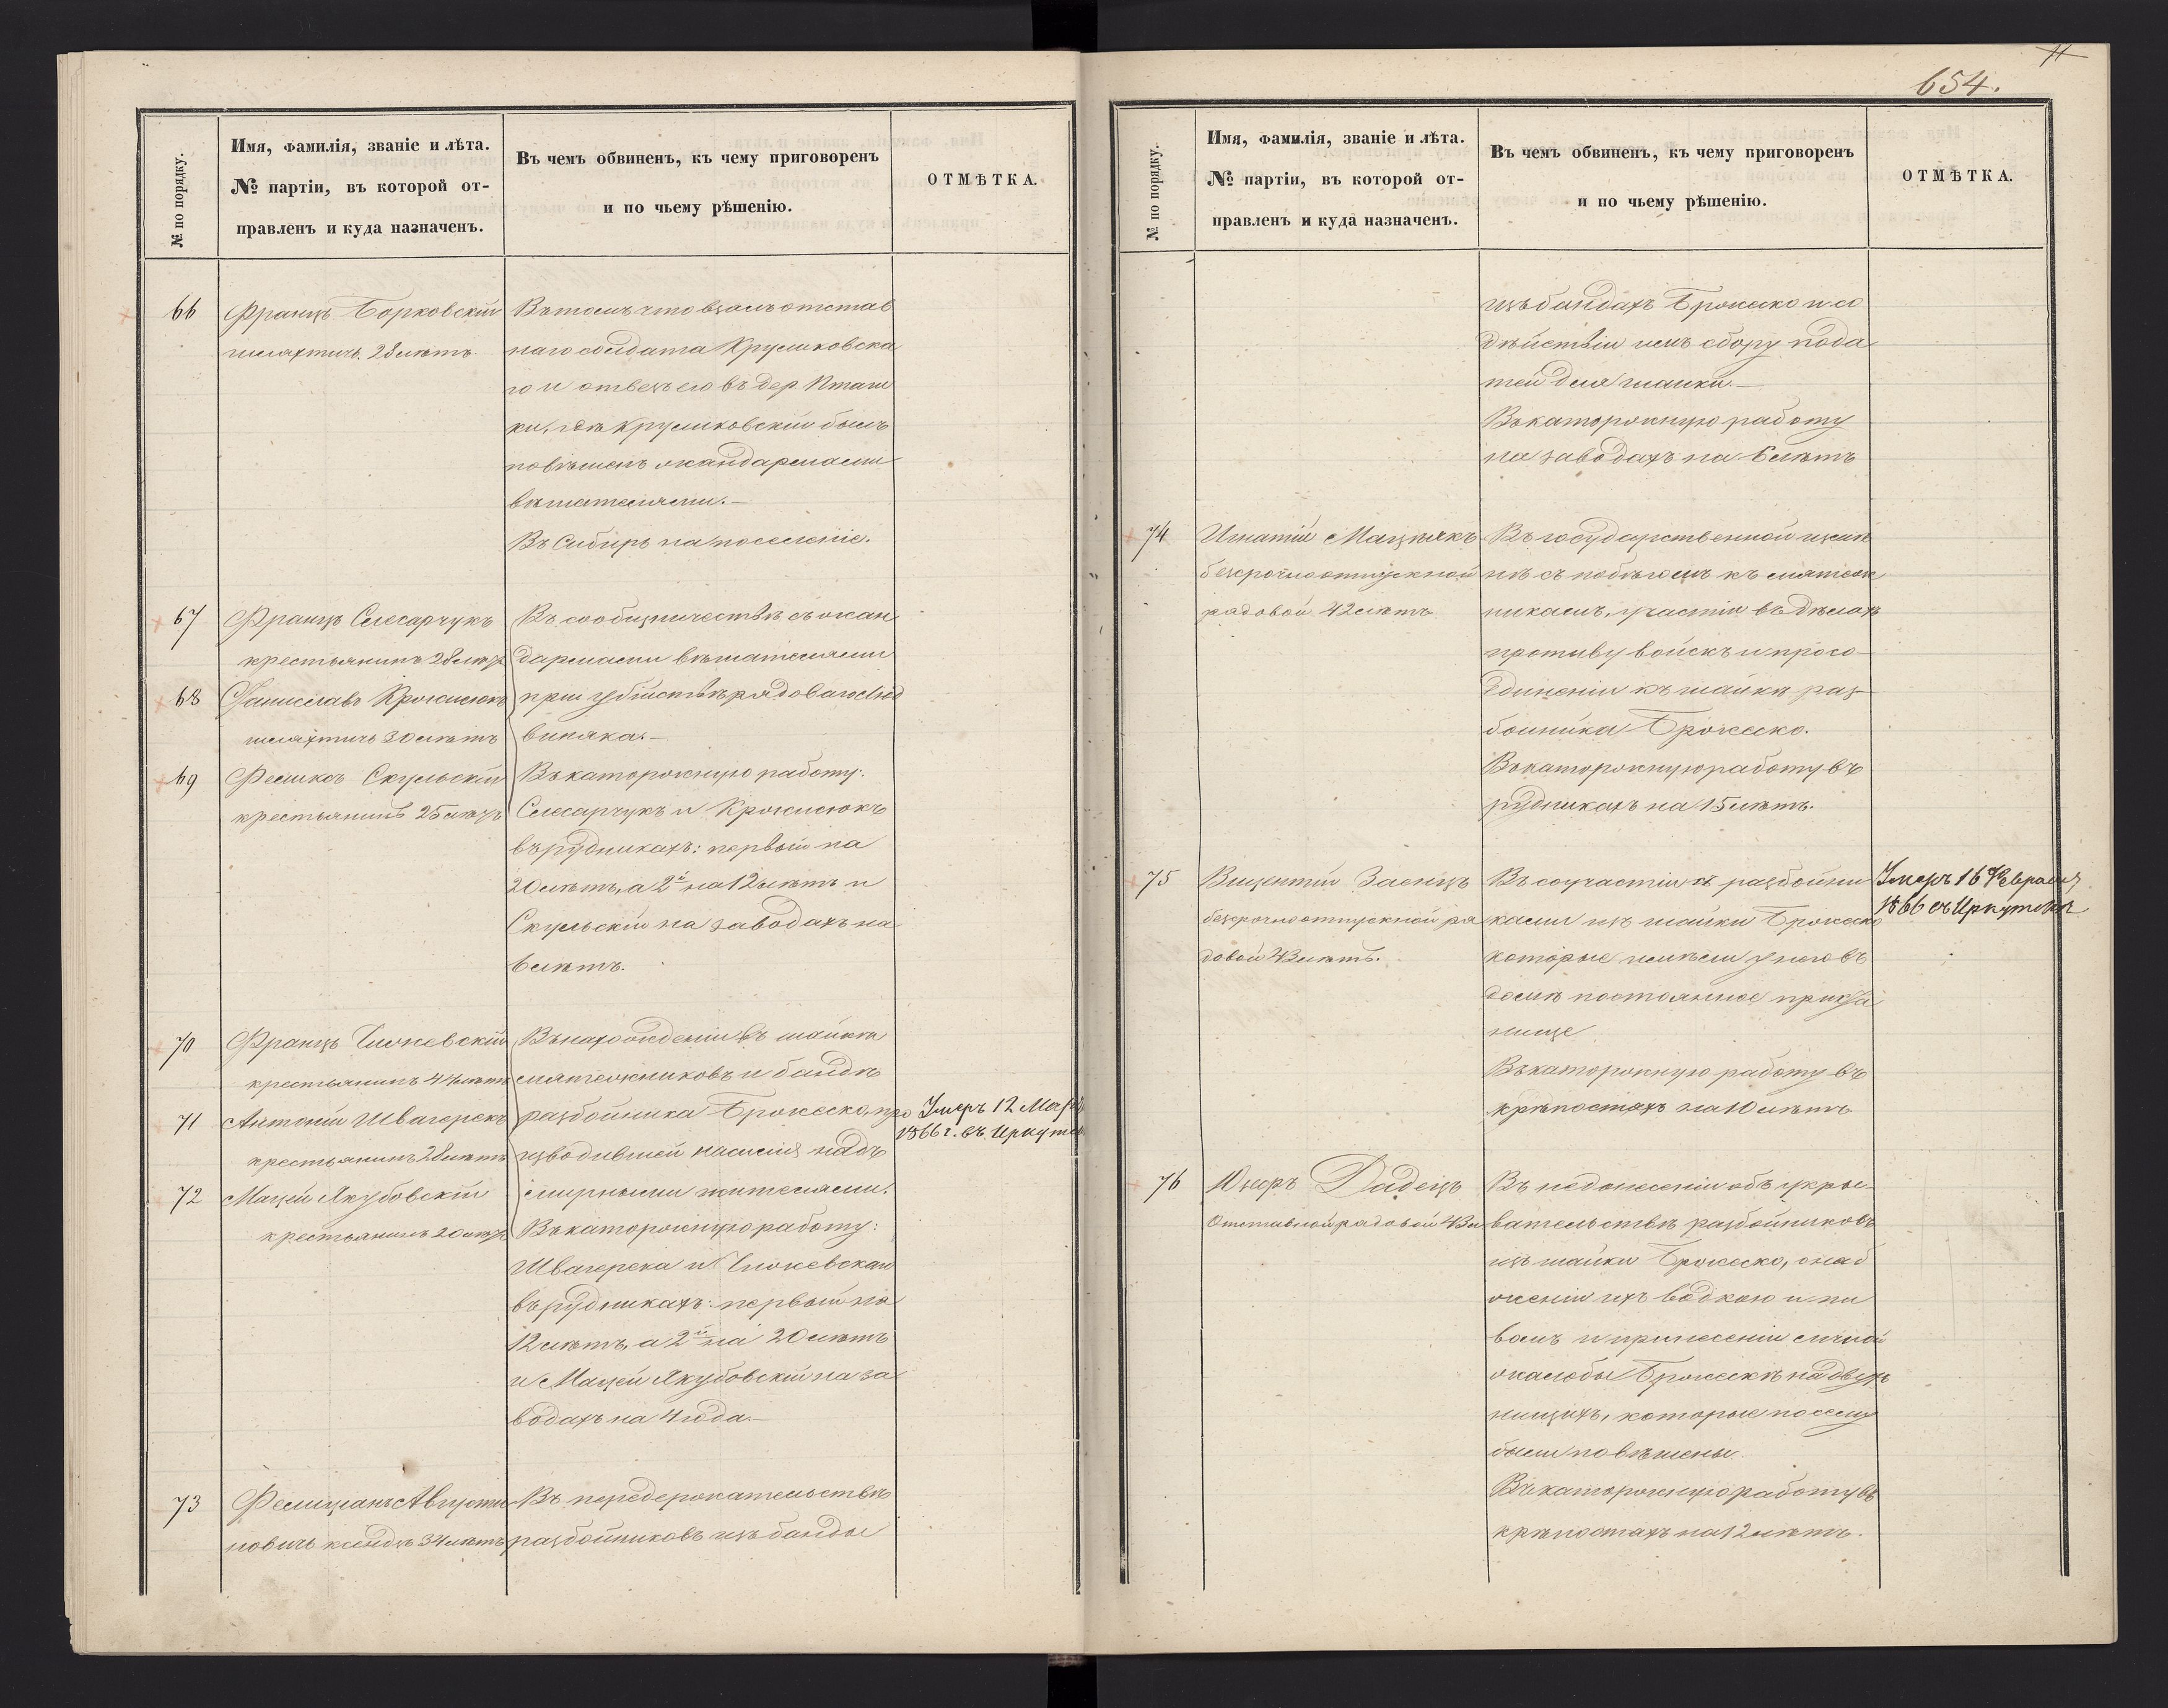 № по порядку.
Имя, фамилія, званіе и лѣта.
№ партіи, въ которой от-
правленъ и куда назначенъ.
Въ чемъ обвиненъ, къ чему приговоренъ
и по чьему рѣшенію.
ОТМѢТКА.
66
Францъ Борковскій
шляхтичъ 28 лѣтъ
Въ томъ что взялъ отстав
наго солдата Круликовска
го и отвезъ его въ дер Пташ
ки, гдѣ Круликовскій былъ
повѣшенъ жандармами
вѣшателями.—
Въ Сибирь на поселеніе.
67
Францъ Слесарчукъ
крестьянинъ 28 лѣтъ
68
Станиславъ Крожилюкъ
шляхтичъ 30 лѣтъ
69
Феликсъ Скульскій
крестьянинъ 25 лѣтъ
Въ сообщничествѣ съ жан
дармами вѣшателями
при убійствѣ рядоваго
виняка.—
Въ каторжную работу:
Слесарчукъ и Крожилюкъ
въ рудникахъ: первый на
20 лѣтъ, а 2й на 12 лѣтъ и
Скульскій на заводахъ на
6 лѣтъ.
70
Францъ
крестьянинъ 44 лѣтъ
71
Антоній Швагерекъ
крестьянинъ 28 лѣтъ
72
Мацей Якубовскій
крестьянинъ 20 лѣтъ
Въ нахожденіи въ шайкѣ
мятежниковъ и бандѣ
разбойника Бржеско, про
изводившей насилія надъ
смирными жителями.
Въ каторжную работу:
Швагерека и
въ рудникахъ: первый на
12 лѣтъ, а 2й на 20 лѣтъ
и Мацей Якубовскій на за
водахъ на 4 года.—
Умеръ 12 Мая
1866 г. въ Иркутск
73
Фелиціанъ Августи
новичъ ксендзъ 34 лѣтъ
Въ передержательствѣ
разбойниковъ изъ банды
654.
№ по порядку.
Имя, фамилія, званіе и лѣта.
№ партіи, въ которой от-
правленъ и куда назначенъ.
Въ чемъ обвиненъ, къ чему приговоренъ
и по чьему рѣшенію.
ОТМѢТКА.
изъ бандахъ Бржеско и со
дѣйствіи имъ сбору пода
тей для шайки.—
Въ каторжную работу
на заводахъ на 6 лѣтъ
74
Игнатій Мацѣякъ
безсрочноотпускной
рядовой 42 лѣтъ
Въ государственной измѣ
нѣ съ побѣгомъ къ мятеж
никамъ, участіи въ дѣлахъ
противу войскъ и присо
единеніи къ шайкѣ раз
бойника Бржеско.
Въ каторжную работу въ
рудникахъ на 15 лѣтъ.
75
Вицентій Заенцъ
безсрочноотпускной ря
довой 43 лѣтъ.
Въ соучастіи съ разбойни
ками изъ шайки Бржеско
которые имѣли у него въ
домѣ постоянное приста
нище
Въ каторжную работу въ
крѣпостяхъ на 10 лѣтъ
Умеръ 16 Февраля
1866 въ Иркутскѣ
76
Юзефъ Дадецъ
Отставной рядовой 43 л
Въ недонесеніи объ укры
вательствѣ разбойниковъ
изъ шайки Бржеско, снаб
женіи ихъ водкою и пи
вомъ и принесеніи личной
жалобы Бржескѣ на двухъ
нищихъ, которые посему
были повѣшены.
Въ каторжную работу въ
крѣпостяхъ на 12 лѣтъ.